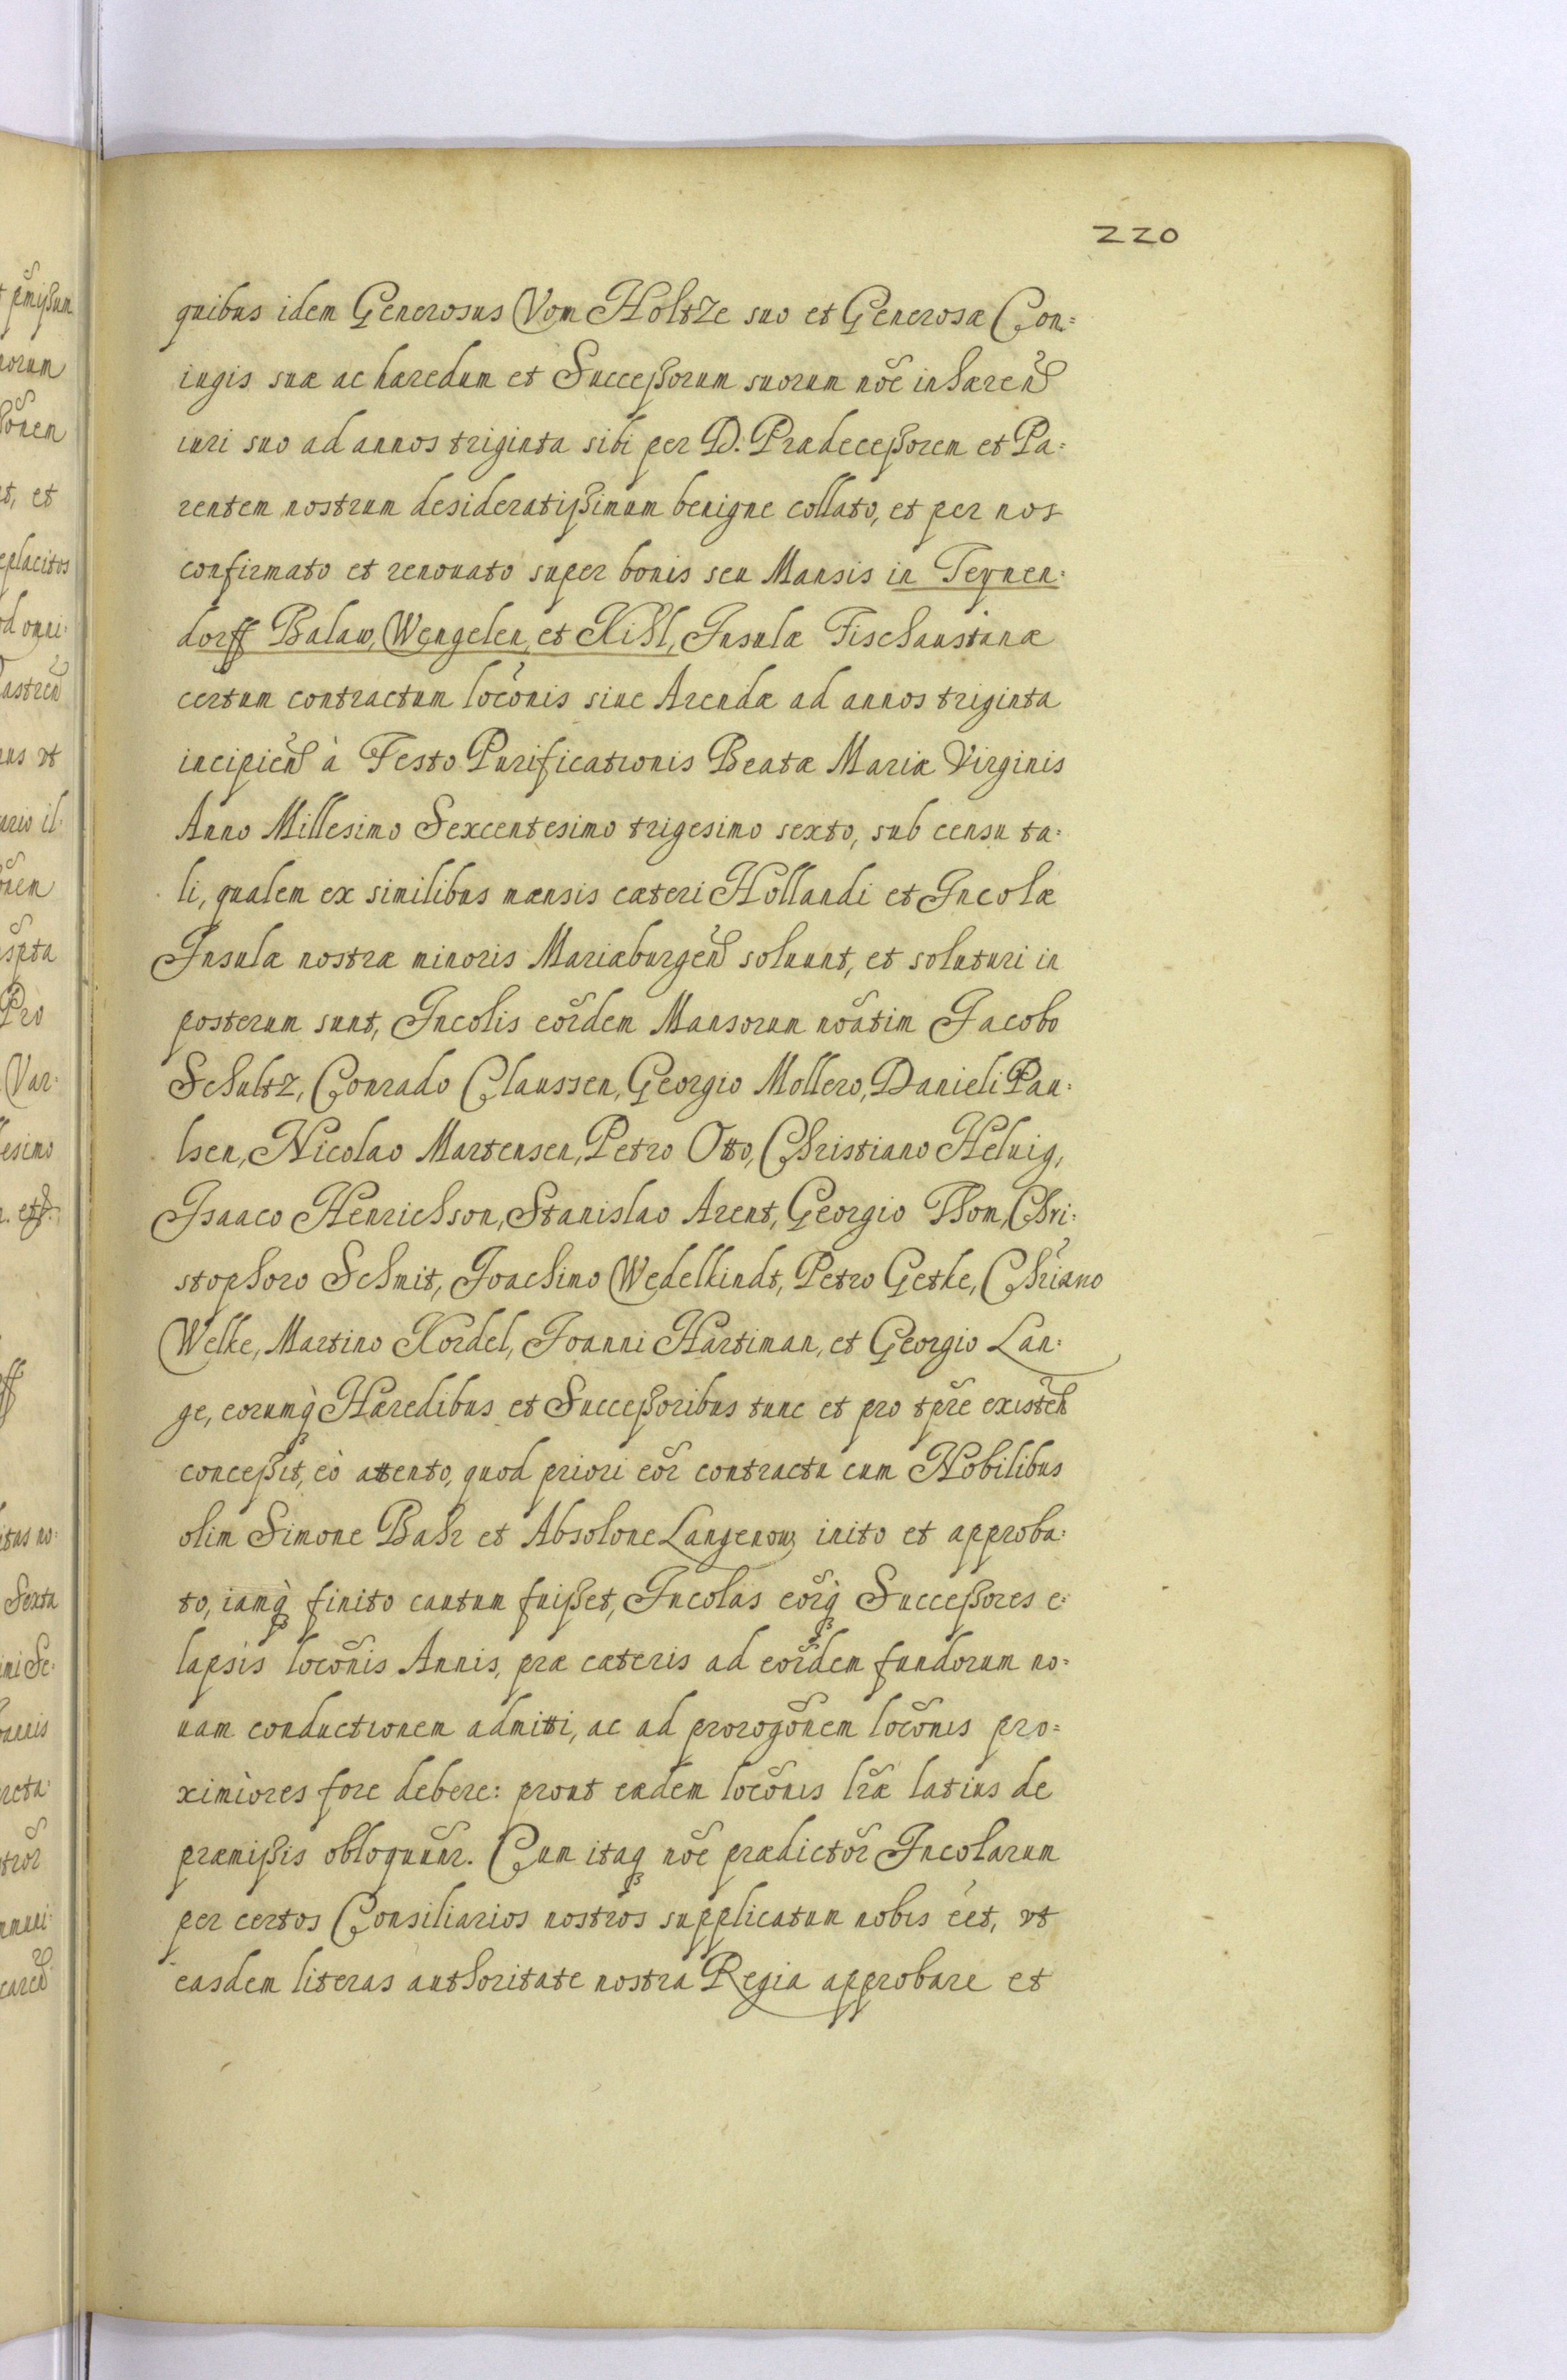 220
quibus idem Generosus Vom Holtze suo et Generosæ Con=
iugis suæ ac hæredum et Successorum suorum nõe inhæreñ
iuri suo ad annos triginta sibi per D. Prædecessorem et Pa=
rentem nostrum desideratissimum benigne collato, et per nos
confirmato et renouato super bonis seu Mansis in Teynen=
dorff Balaw, Wengelen, et Kihl, Insulæ Fischaustinæ
certum contractum locõnis siue Arendæ ad annos triginta
incipieñ à Festo Purificationis Beatæ Mariæ Virginis
Anno Millesimo Sexcentesimo trigesimo sexto, sub censu ta=
li, qualem ex similibus mansis cæteri Hollandi et Incolæ
Insulæ nostræ minoris Mariæburgeñ soluunt, et soluturi in
posterum sunt, Incolis eõrdem Mansorum nõatim Jacobo
Schultz, Conrado Claussen, Georgio Mollero, Danieli Pau=
lsen, Nicolao Martensen, Petro Otto, Christiano Heluig,
Isaaco Henrichson, Stanislao Arent, Georgio Thom, Chri=
stophoro Schmit, Joachimo Wedelkindt, Petro Getke, Chriãno
Welke, Martino Kordel, Joanni Hartiman, et Georgio Lan=
ge, eorumq̀ Hæredibus et Successoribus tunc et pro tp̃re existeñ
concessit, eò attento, quod priori eõr contractu cum Nobilibus
olim Simone Bahr et Absolone Langenow, inito et approba=
to, iamq̀ finito cautum fuisset, Incolas eõrq̀ Successores e=
lapsis locõnis Annis, præ cæteris ad eõrdem fundorum no=
uam conductionem admitti, ac ad prorogõnem locõnis pro=
ximiores fore debere: prout eædem locõnis lr̃æ latius de
præmissis obloquuñr. Cum itaq nõe prædictõr Incolarum
per certos Consiliarios nostros supplicatum nobis eèt, vt
easdem literas authoritate nostra Regia approbare et